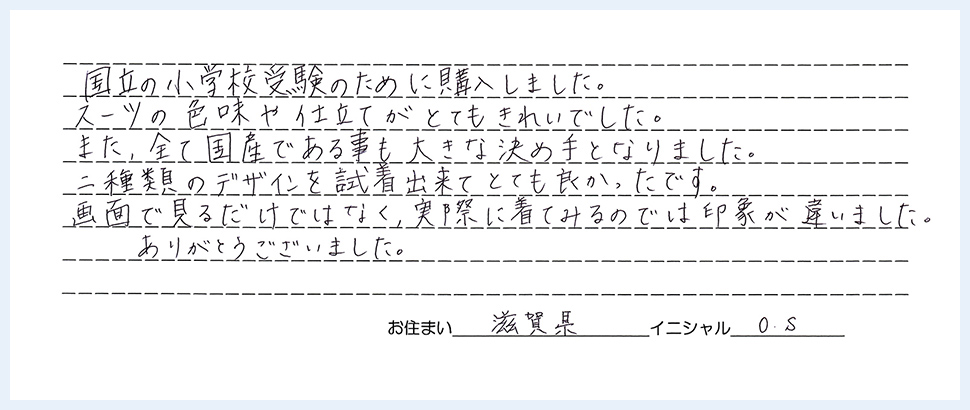 国立の小学校受験のために購入しました。
スーツの色味や仕立てがとてもきれいでした。
また、全て国産である事も大きな決め手となりました。
二種類のデザインを試着出来てとても良かったです。
画面で見るだけではなく、実際に着てみるのでは印象が違いました。
ありがとうございました。
お住まい 滋賀県 イニシャル O.S